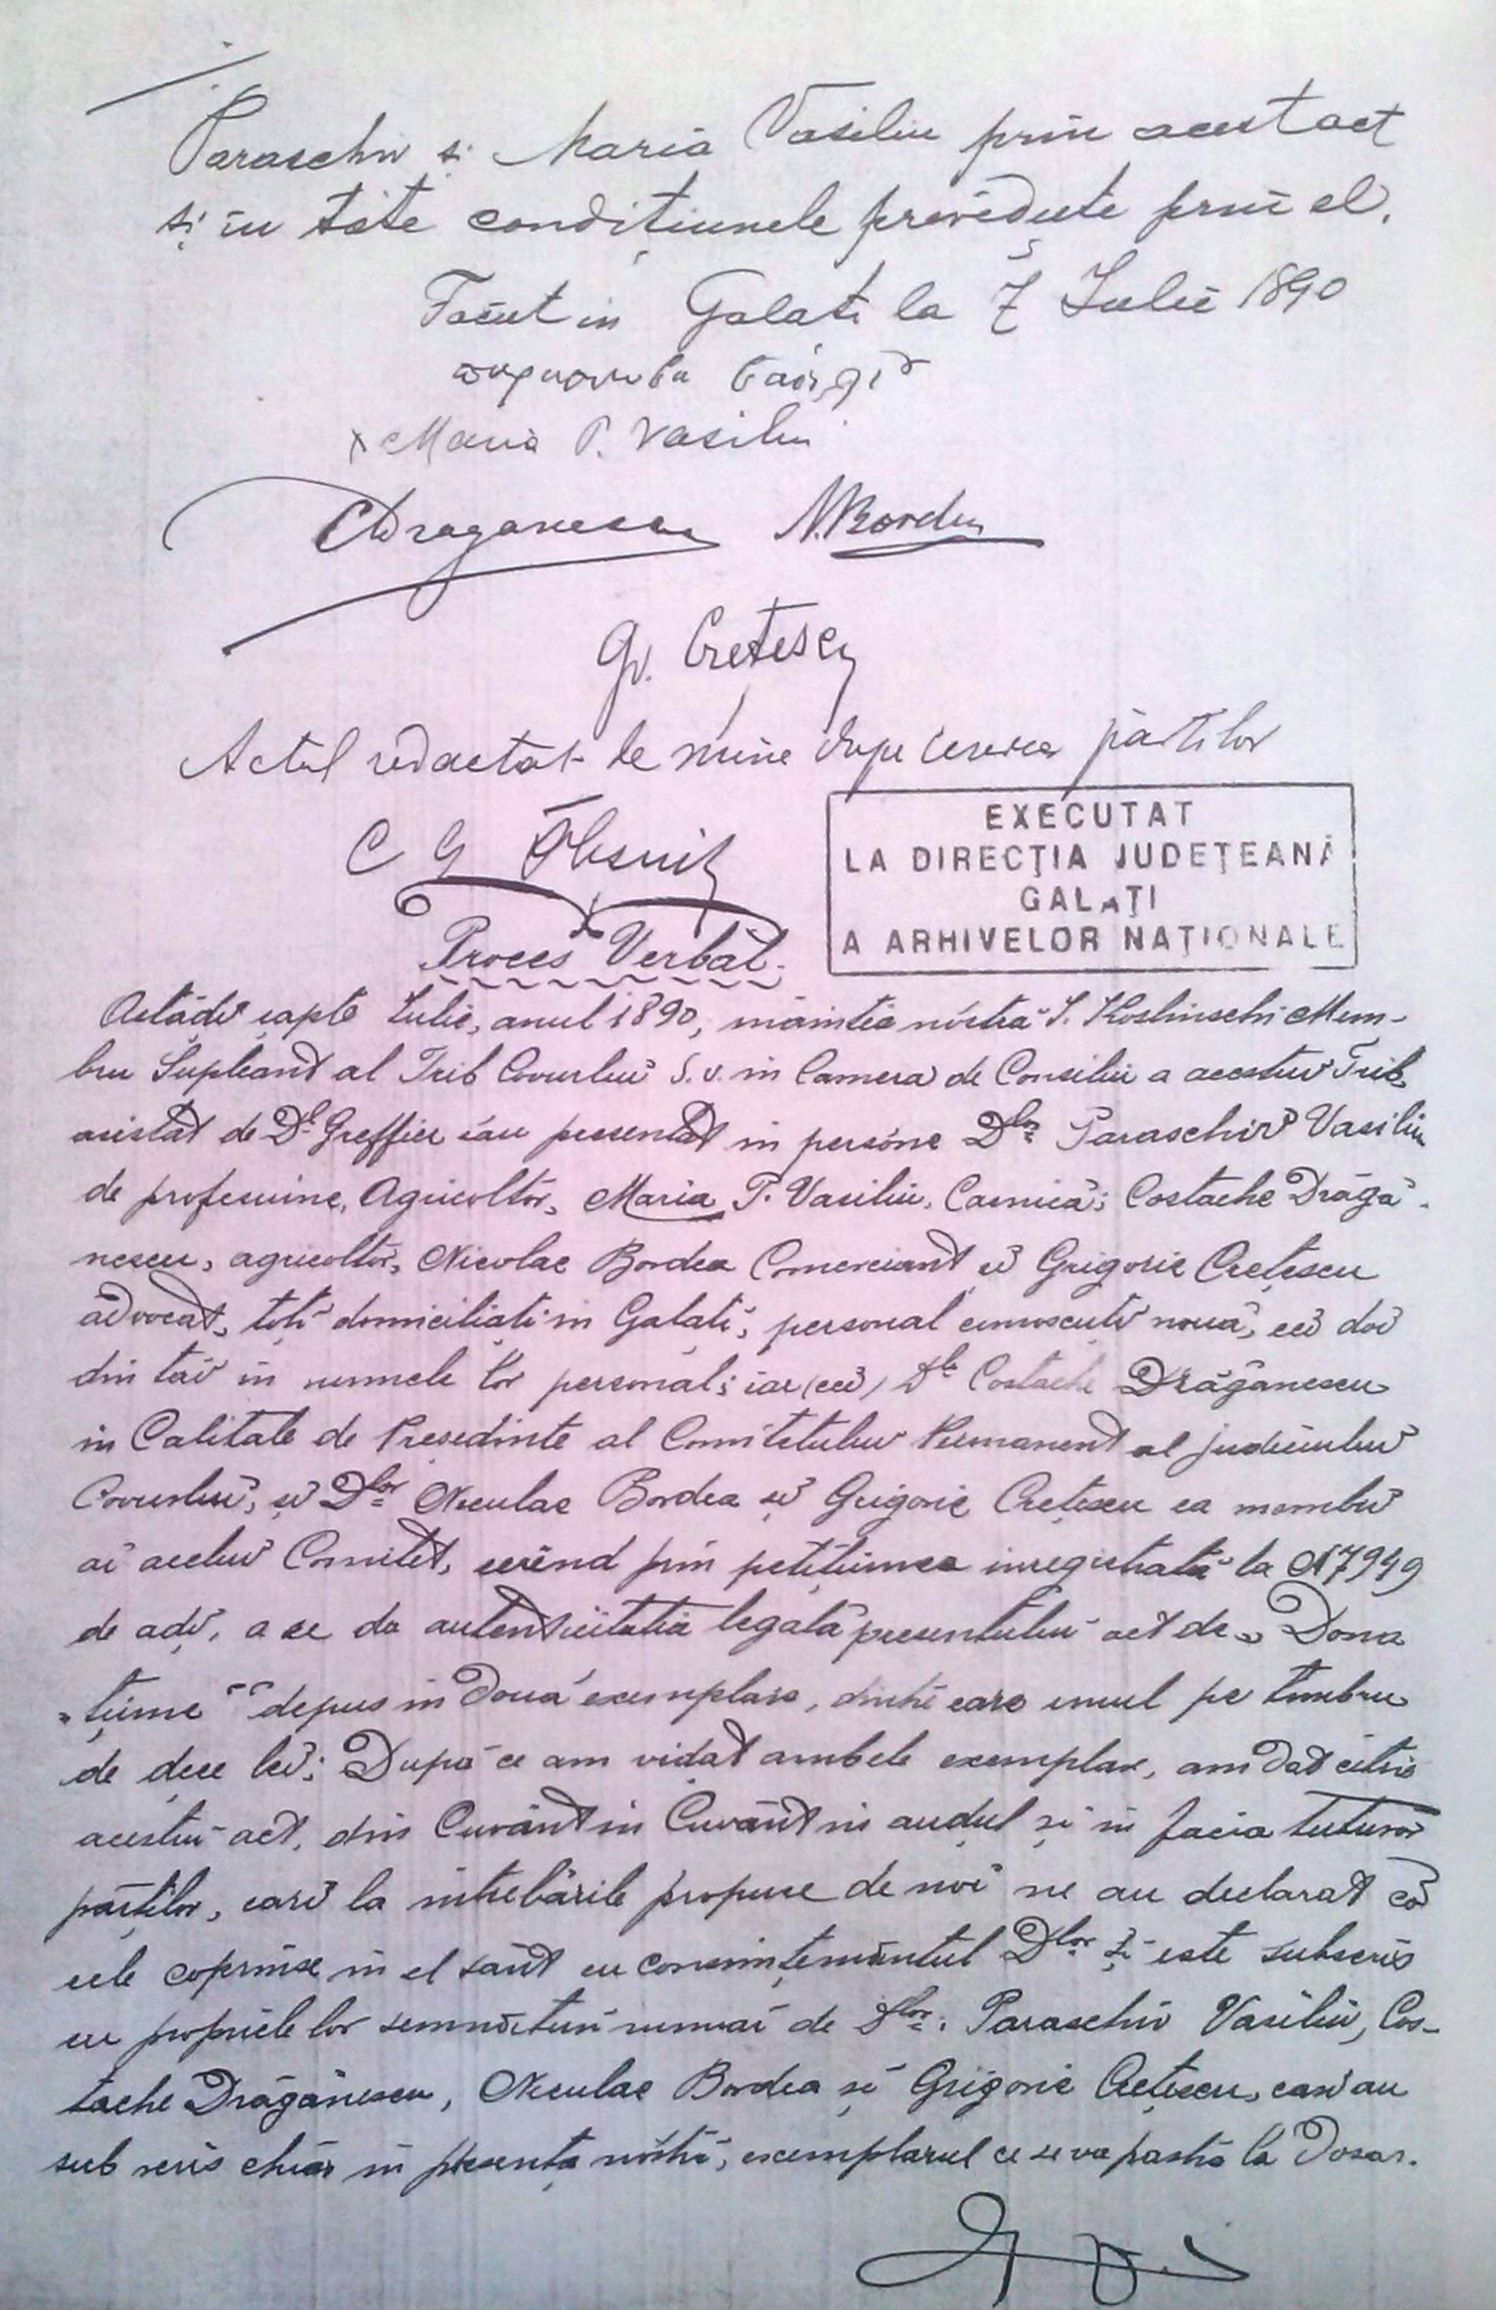 Paraschiv și Maria Vasiliu prin acest act
și în tóte condițiunele prevĕdute prin el.
Făcut in Galati la 7 Iulie 1890
Maria P. Vasiliu
C Draganescu N. Bordea
Gr. Crețescu
Actul redactat de mine dupe cererea părtilor
C G
EXECUTAT
LA DIRECȚIA JUDEȚEANĂ
GALAȚI
A ARHIVELOR NAȚIONALE
Proces Verbal
Astăḑi șapte Iulie, anul 1890, inaintea nóstră Mem-
bru Supleant al Trib Covurluĭ S. v. in Camera de Consiliu a acestuĭ Trib.
asistat de D. Greffier s'au presentat in persóne Dlor Paraschiv Vasiliu
de profesiune, Agricoltor, Maria P. Vasiliu, Casnică; Costache Drăgă-
nescu, agricoltor, Nicolae Bordea Comerciant și Grigorie Crețescu
advocat, toți domiciliați in Galați, personal cunoscuți nouă, ceĭ doĭ
din tâĭ in numele lor personal; iar (ceĭ) Dl. Costache Drăgănescu
in Calitate de Președinte al Comitetuluĭ Permanent al județuluĭ
Covurluĭ, și Dlor Neculae Bordea și Grigorie Crețescu ca membri
ai aceluĭ Comitet, cerênd prin petițiunea inregistrată la N 7949
de adĭ, a se da autenticitatea legală presentuluĭ act de „Dona
„țiune" depus in două exemplare, dintre care unul pe timbru
de ḑece leĭ; După ce am vidat ambele exemplare, am dat citire
acestui act, din Cuvânt in Cuvânt in auḑul și in facia tuturor
părților, cari la intrebările propuse de noi ne au declarat că
cele coprinse in el sânt cu consimțemêntul Dlor și este subscris
cu propriele lor semnături numai de Dlor: Paraschiv Vasiliu, Cos-
tache Drăgănescu, Neculae Bordea și Grigorie Crețescu, cari au
sub scris chiar in presența nóstră, exemplarul ce se va pastra la Dosar.